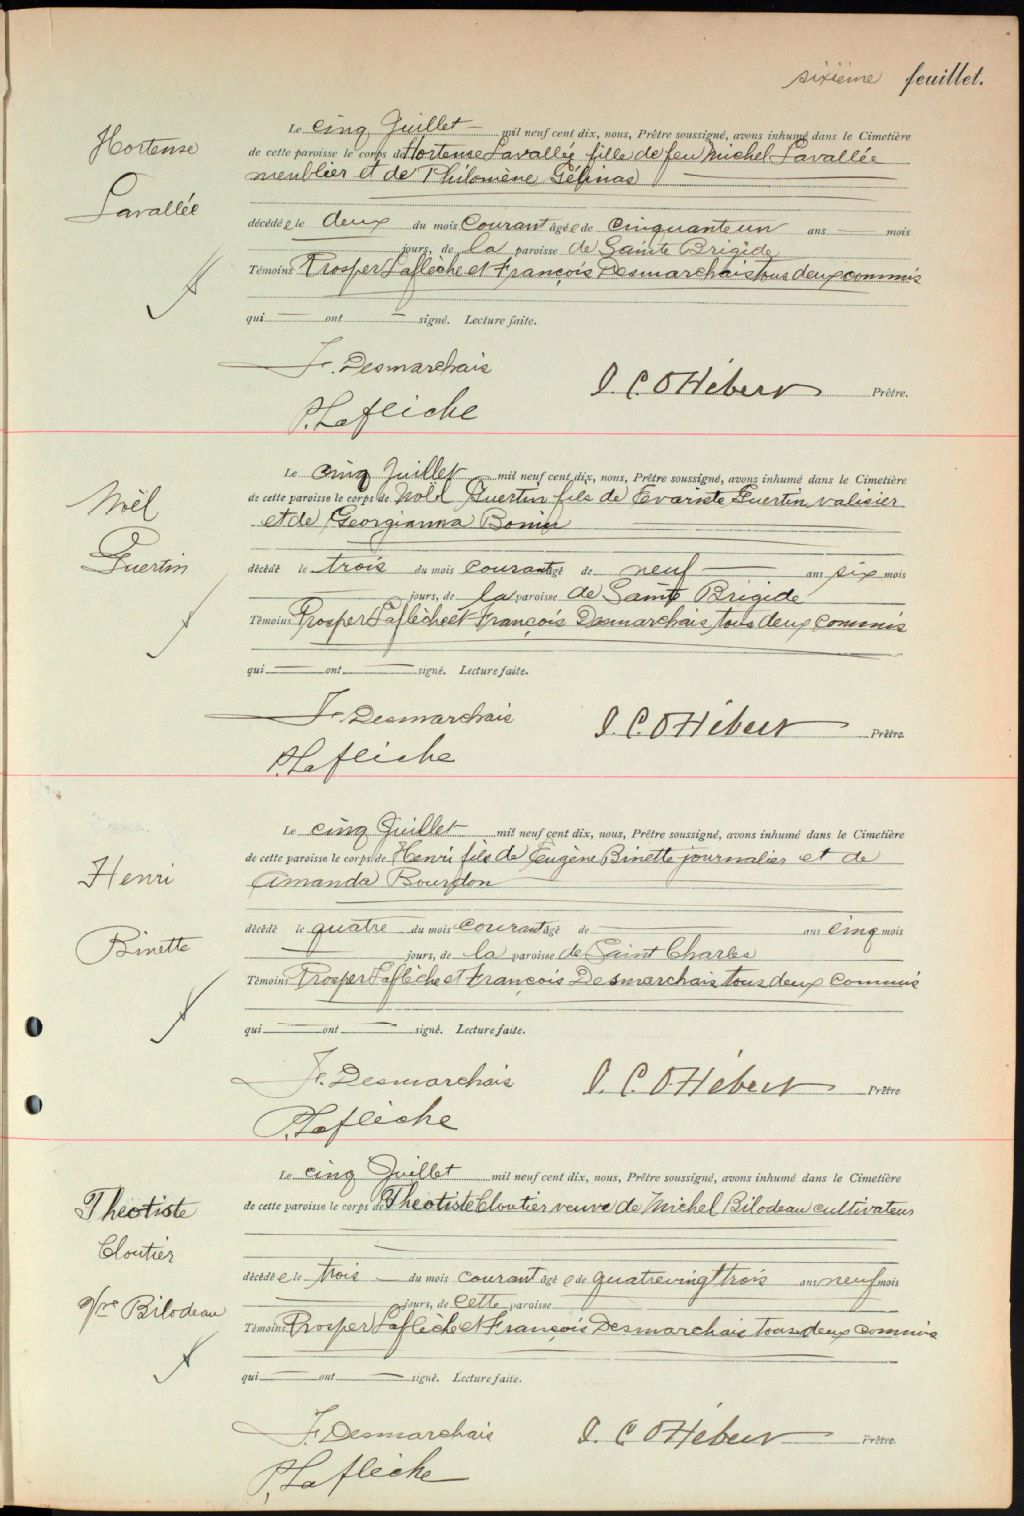 sixième feuillet.
Hortense
Lavallée
Le cinq Juillet mil neuf cent dix, nous, Prêtre soussigné, avons inhumé dans le Cimetière
de cette paroisse le corps de Hortense Lavallée fille de feu Michel Lavallée
meublier et de Philomène Gélinas
décédée le deux du mois courant âgée de cinquante un ans mois
jours, de la paroisse de Sainte Brigide
Témoins Prosper Laflèche et François Desmarchais tous deux commis
qui ont signé. Lecture faite.
F. Desmarchais
J. C. O Hébert Prêtre.
P. Laflèche
Noël
Guertin
Le cinq Juillet mil neuf cent dix, nous, Prêtre soussigné, avons inhumé dans le Cimetière
de cette paroisse le corps de Noël Guertin fils de Evariste Guertin valisier
et de Georgianna Bonin
décédé le trois du mois courant âgé de neuf ans six mois
jours, de la paroisse de Sainte Brigide
Témoins Prosper Laflèche et François Desmarchais tous deux commis
qui ont signé. Lecture faite.
F. Desmarchais
J. C. O Hébert Prêtre.
P. Laflèche
Henri
Binette
Le cinq Juillet mil neuf cent dix, nous, Prêtre soussigné, avons inhumé dans le Cimetière
de cette paroisse le corps de Henri fils de Eugène Binette journalier et de
Amanda Bourdon
décédé le quatre du mois courant âgé de ans cinq mois
jours, de la paroisse de Saint Charles
Témoins Prosper Laflèche et François Desmarchais tous deux commis
qui ont signé. Lecture faite.
F. Desmarchais
J. C. O Hébert Prêtre
P. Laflèche
Theotiste
Cloutier
Vve Bilodeau
Le cinq Juillet mil neuf cent dix, nous, Prêtre soussigné, avons inhumé dans le Cimetière
de cette paroisse le corps de Theotiste Cloutier veuve de Michel Bilodeau cultivateur
décédée le trois du mois courant âgée de quatrevingt trois ans neuf mois
jours, de cette paroisse
Témoins Prosper Laflèche et François Desmarchais tous deux commis
qui ont signé. Lecture faite.
F. Desmarchais
J. C O Hébert Prêtre
P. Laflèche